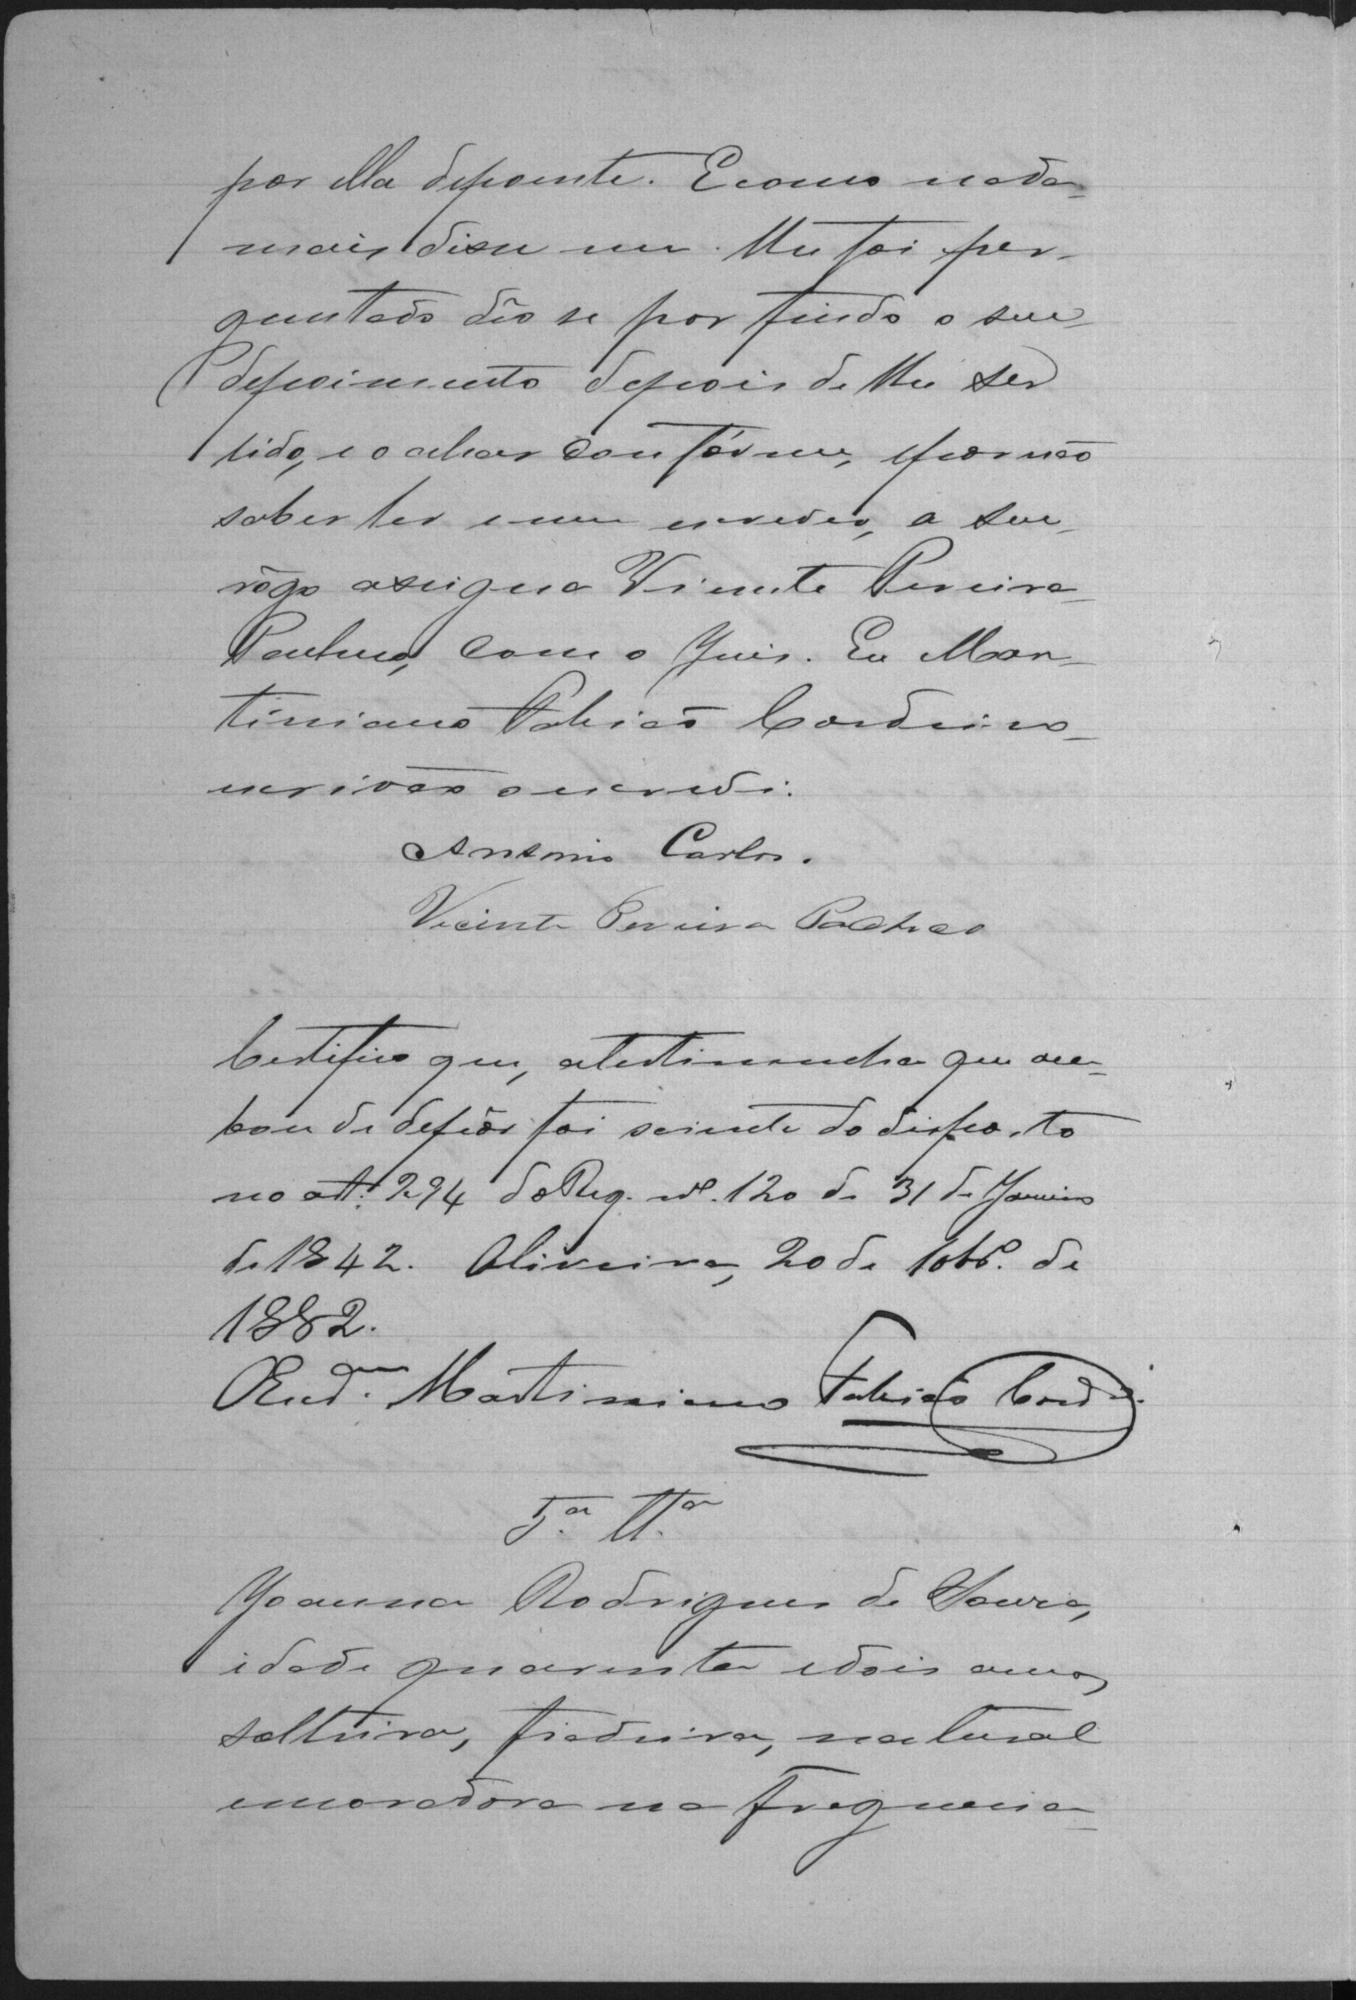 por ella depoente. E como nada
mais disse nem lhe foi per-
guntado dêo se por findo o seu
depoimento depois de lhe ser
lido, e o achar confórme, e por não
saber ler e nem escrever, a seu
rôgo assigna Vicente Pereira
Pacheco, com o Juis. Eu Mar-
tiniano Fabião Cordeiro
escrivão o escrevi.
Antonio Carlos.
Vicente Pereira Pacheco
Certifico que, a testimunha que aca-
bou de depôr foi sciente do disposto
no art. 294 do Reg. nº. 120 de 31 de Janeiro
de 1842. Oliveira, 20 de 10bº. de
1882.
Martiniano Fabião Cord.º
5.ª Tt.ª
Joanna Rodrigues de Souza,
idade quarenta e dois annos,
solteira, fiadeira, natural
e moradora na Freguesia